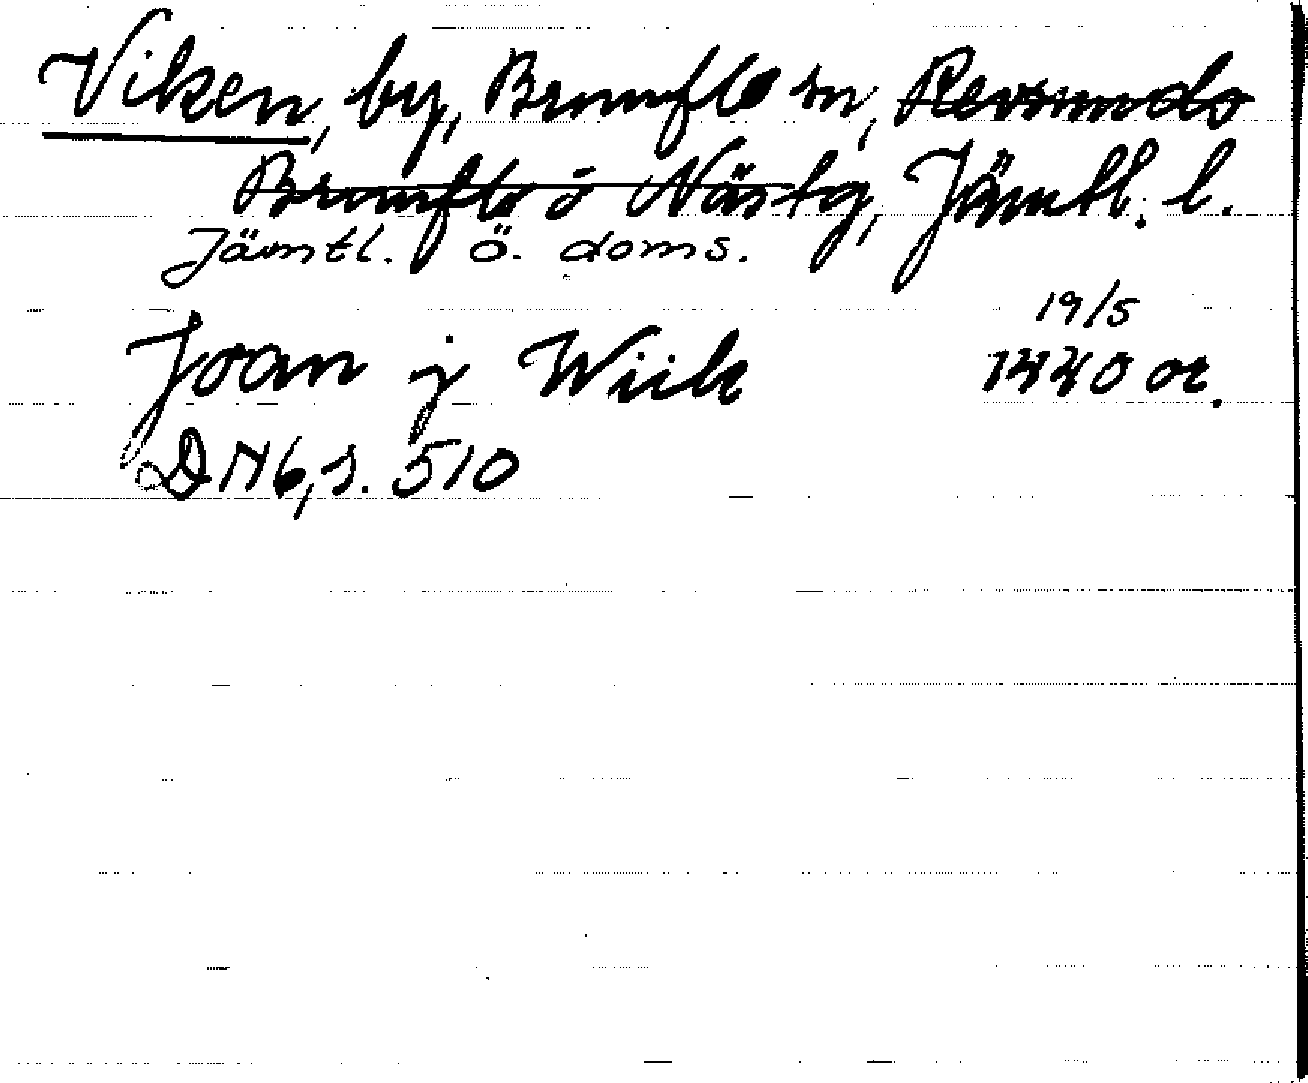 Viken, by, Brunflo sn, Revsunds
Brunflo o Näs tg, Jämtl. l.
Jämtl. ö. doms.
19/5
Joan j Wiik 1440 or.
DN 6, s. 510